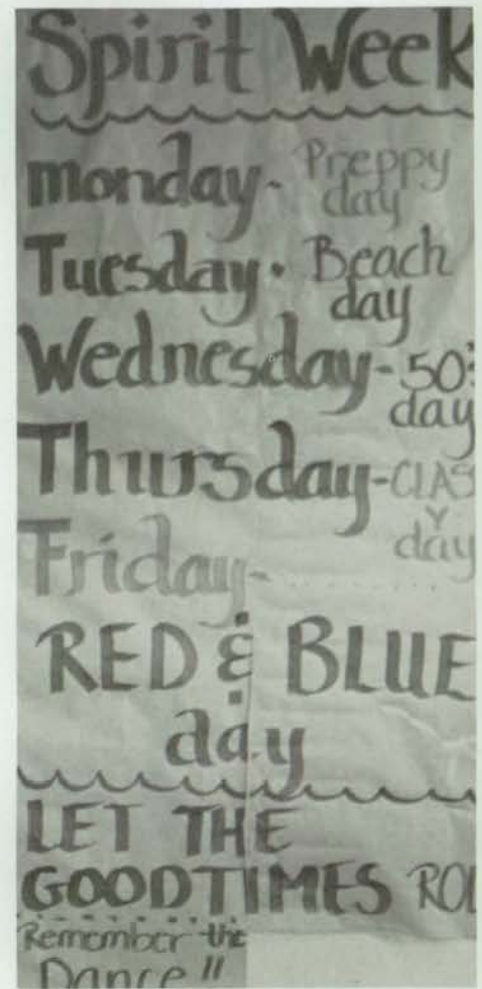 Spirit Week
monday- Preppy
day
Tuesday- Beach
day
Wednesday- 50's
day
Thursday- CLAS
Y
day
Friday-
RED & BLUE
day
LET THE
GOODTIMES ROL
Remember the
Dance!!